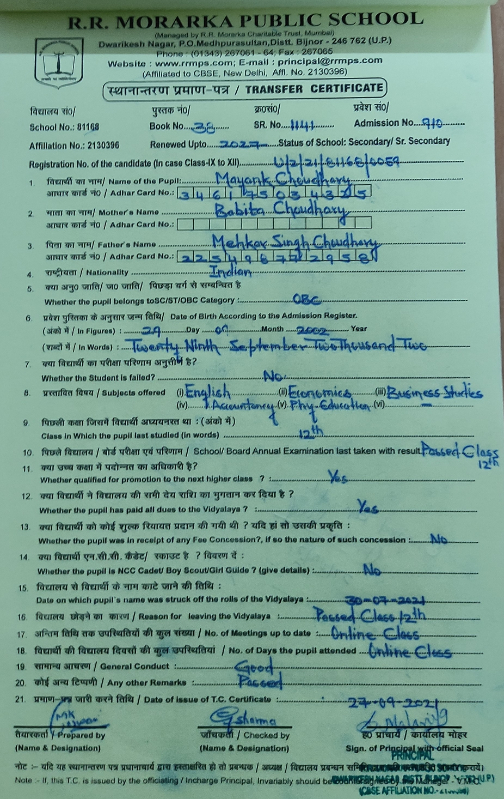 R.R. MORARKA PUBLIC SCHOOL
(Managed by R.R. Morarka Charitable Trust, Mumbai)
Dwarikesh Nagar, P.O.Medhpurasultan,Distt. Bijnor - 246 762 (U.P.)
Phone : (01343) 267061 - 64; Fax : 267065
Website : www.rrmps.com; E-mail : principal@rrmps.com
(Affiliated to CBSE, New Delhi, Affl. No. 2130396)
स्थानान्तरण प्रमाण-पत्र / TRANSFER CERTIFICATE
विद्यालय सं0/ पुस्तक नं0/ क्र0सं0/ प्रवेश सं0/
School No.: 81168 Book No. 38 SR. No. 1141 Admission No. 910
Affiliation No.: 2130396 Renewed Upto 2027 Status of School: Secondary/ Sr. Secondary
Registration No. of the candidate (In case Class-IX to XII) U/2/21/81168/0059
1. विद्यार्थी का नाम/ Name of the Pupil: Mayank Choudhary
आधार कार्ड नं0 / Adhar Card No.: 3 4 6 1 7 5 0 3 4 3 2 5
2. माता का नाम/ Mother's Name Babita Choudhary
आधार कार्ड नं0 / Adhar Card No.:
3. पिता का नाम/ Father's Name Mehkar Singh Choudhary
आधार कार्ड नं0 / Adhar Card No.: 2 2 5 4 9 8 7 7 2 9 5 8
4. राष्ट्रीयता / Nationality Indian
5. क्या अनु0 जाति/ ज0 जाति/ पिछड़ा वर्ग से सम्बन्धित है
Whether the pupil belongs toSC/ST/OBC Category : OBC
6. प्रवेश पुस्तिका के अनुसार जन्म तिथि/ Date of Birth According to the Admission Register.
(अंको में / In Figures) : 29 Day 09 Month 2002 Year
(शब्दों में / In Words) : Twenty Ninth September Two Thousand Two
7. क्या विद्यार्थी का परीक्षा परिणाम अनुत्तीर्ण है?
Whether the Student is failed? No
8. प्रस्तावित विषय / Subjects offered (i) English (ii) Economics (iii) Business Studies
(iv) Accountancy (v) Phy. Education (vi) —
9. पिछली कक्षा जिसमें विद्यार्थी अध्ययनरत था : (अंको में)
Class in Which the pupil last studied (in words) 12th
10. पिछले विद्यालय / बोर्ड परीक्षा एवं परिणाम / School/ Board Annual Examination last taken with result Passed Class 12th
11. क्या उच्च कक्षा में पदोन्नत का अधिकारी है?
Whether qualified for promotion to the next higher class ? : Yes
12. क्या विद्यार्थी ने विद्यालय की सभी देय राशि का भुगतान कर दिया है ?
Whether the pupil has paid all dues to the Vidyalaya ? : Yes
13. क्या विद्यार्थी को कोई शुल्क रियायत प्रदान की गयी थी ? यदि हां तो उसकी प्रकृति :
Whether the pupil was in receipt of any Fee Concession?, if so the nature of such concession : No
14. क्या विद्यार्थी एन.सी.सी. कैडेट/ स्काउट है ? विवरण दें :
Whether the pupil is NCC Cadet/ Boy Scout/Girl Guide ? (give details) : No
15. विद्यालय से विद्यार्थी के नाम काटे जाने की तिथि :
Date on which pupil`s name was struck off the rolls of the Vidyalaya : 30-07-2021
16. विद्यालय छोड़ने का कारण / Reason for leaving the Vidyalaya : Passed Class 12th
17. अन्तिम तिथि तक उपस्थितियों की कुल संख्या / No. of Meetings up to date : Online Class
18. विद्यार्थी की विद्यालय दिवसों की कुल उपस्थितियां / No. of Days the pupil attended Online Class
19. सामान्य आचरण / General Conduct : Good
20. कोई अन्य टिप्पणी / Any other Remarks : Passed
21. प्रमाण-पत्र जारी करने तिथि / Date of issue of T.C. Certificate : 27-09-2021
Sharma
तैयारकर्ता / Prepared by जाँचकर्ता / Checked by ह0 प्राचार्य / कार्यालय मोहर
(Name & Designation) (Name & Designation) Sign. of Principal with official Seal
PRINCIPAL
नोट :- यदि यह स्थानान्तरण पत्र प्रधानाचार्य द्वारा हस्ताक्षरित हो तो प्रबन्धक / अध्यक्ष / विद्यालय प्रबन्धन
Note :- If, this T.C. is issued by the officiating / Incharge Principal, Invariably should be Manager - V.M.C.
DWARIKESH NAGAR, DISTT. BIJNOR
(CBSE AFFILIATION NO.-2130396)